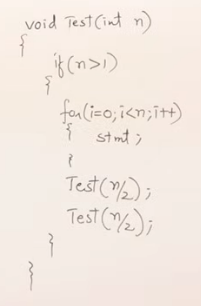 void Test(int n)
{
if(n>1)
{
for(i=0;i<n;i++)
{
stmt;
}
Test(n/2);
Test(n/2);
}
}